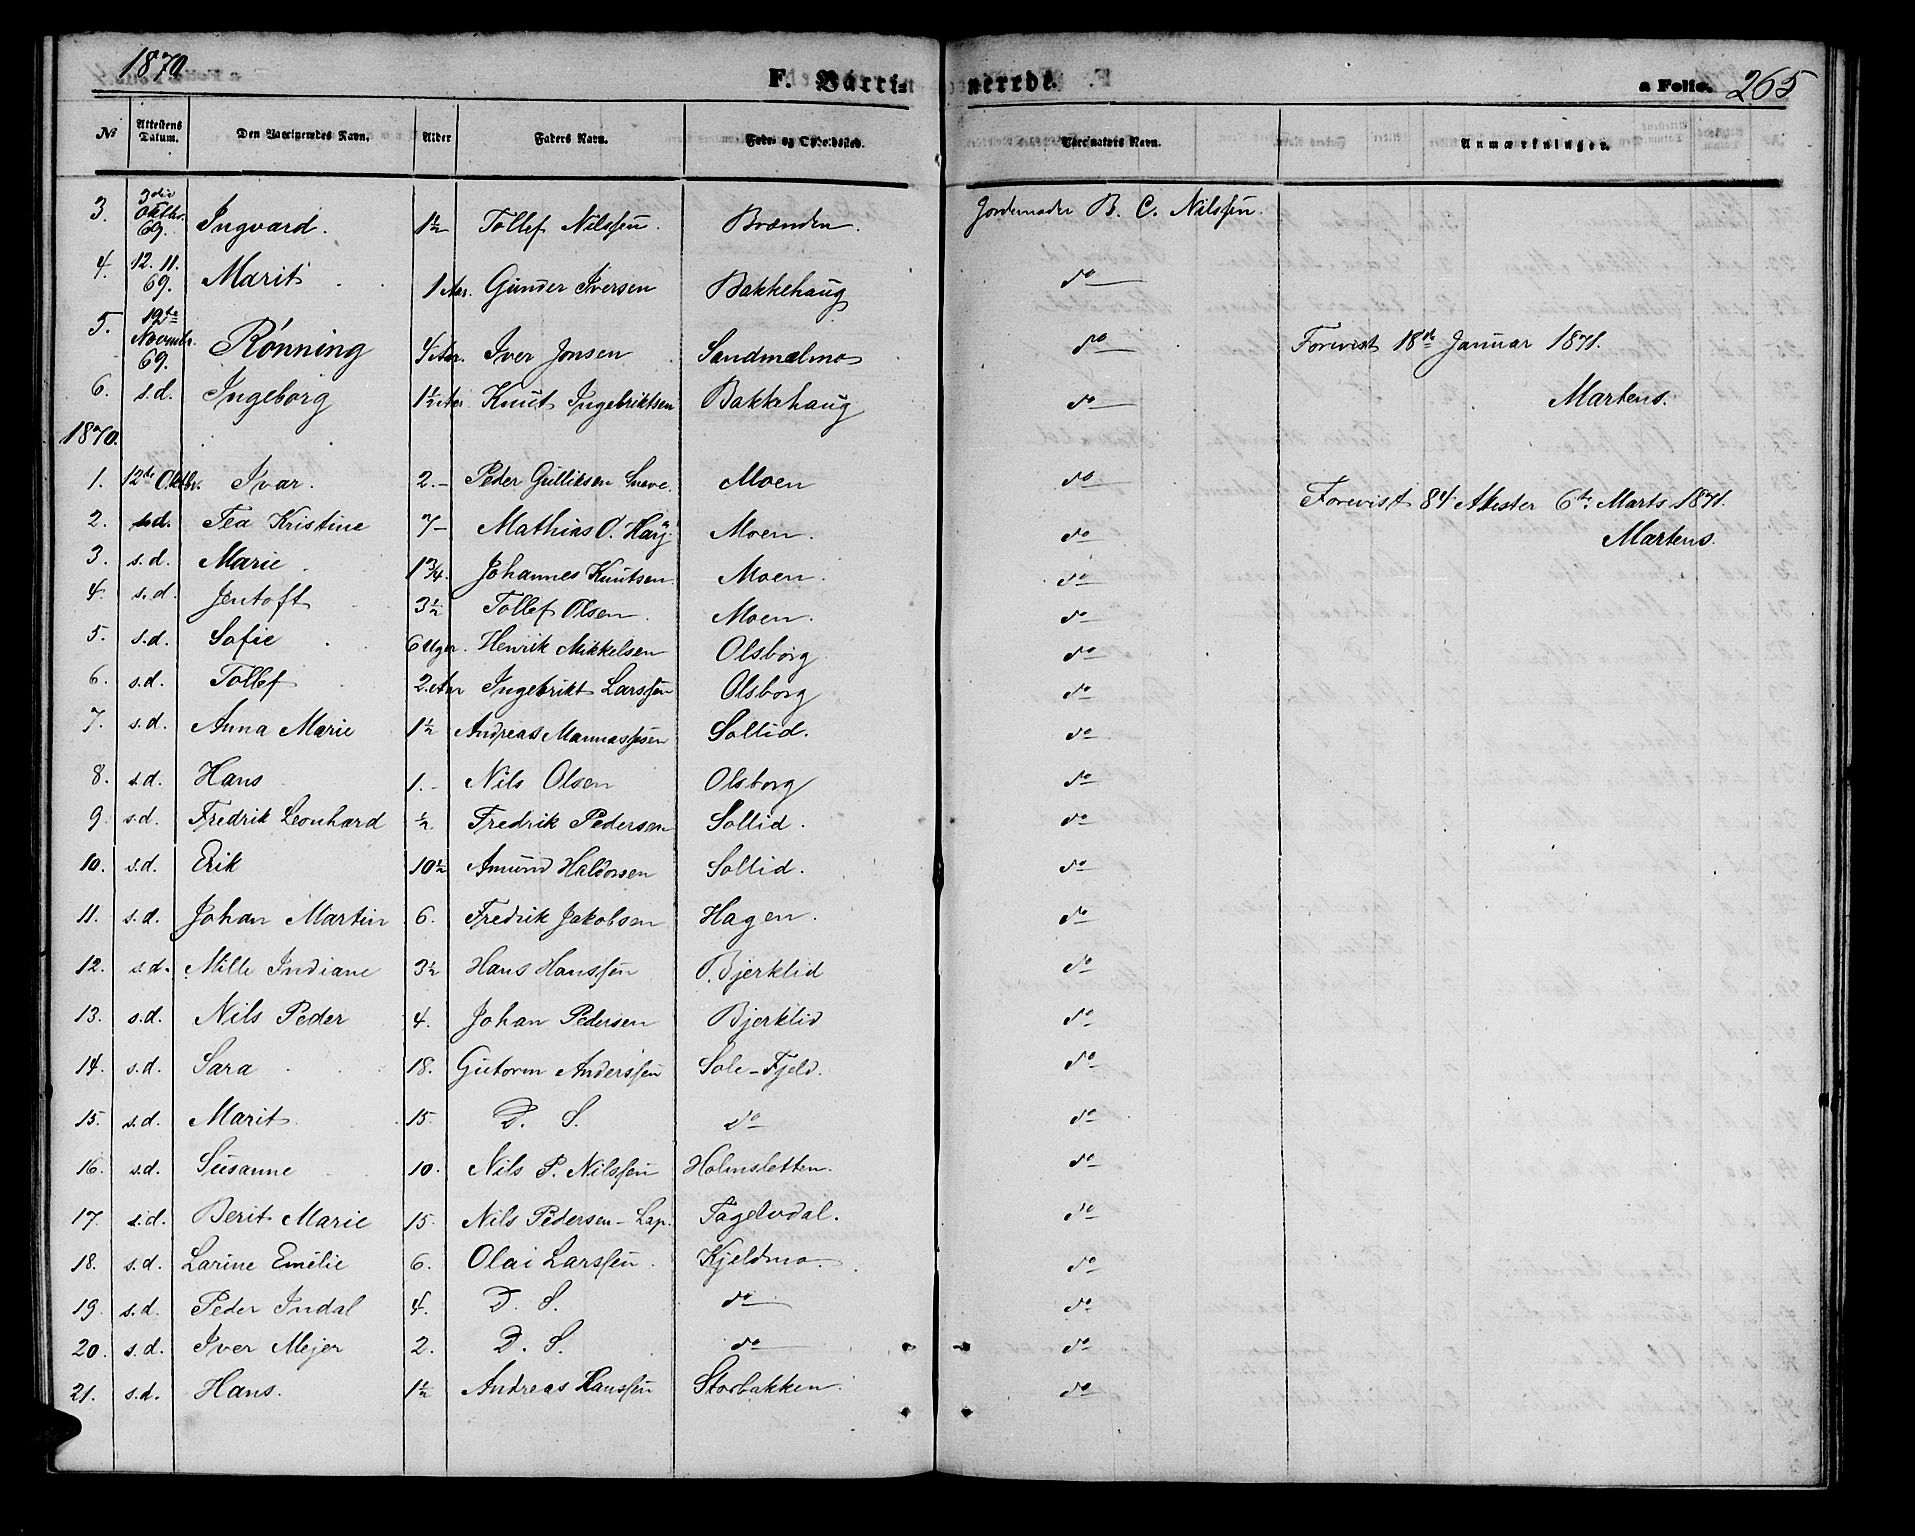 1870
F. Vacci- nerede.
a Folio. 265
No Attestens Datum. Den Vaccineredes Navn. Alder Faders Navn. Føde- og Opholdssted. Vaccinateurs Navn. Anmærkninger.
3. 3die Oktbr. 69. Ingvard. 1½ Tollef Nilssen. Brænden. Jordemoder B. C. Nilssen.
4. 12. 11. 69. Marit 1 Aar. Gunder Iversen Bakkehaug do
5. 12te Novembr. 69. Rønning 4 Aar. Iver Jonsen Sandmælmo do Forevist 18de Januar 1871.
6. s.d. Ingeborg 1½ Aar Knut Ingebriktsen Bakkehaug do Martens.
1870.
1. 12te Oktbr. Ivar. 2.- Peder Gulliksen Moen do Forevist 84 Attester 6te Marts 1871.
2. s.d. Tea Kristine 7- Mathias O. Moen. do Martens.
3. s.d. Marie 1¾. Johannes Knutsen Moen. do
4. s.d. Jentoft 3½ Tollef Olsen. Moen. do
5. s.d. Sofie 6 Uger. Henrik Mikkelsen Olsborg do
6. s.d. Tollef 2. Aar Ingebrikt Larssen Olsborg do
7. s.d. Anna Marie 1½ Andreas Manassesen Sollid. do
8. s.d. Hans 1.- Nils Olsen Olsborg do
9. s.d. Fredrik Leonhard ½ Fredrik Pedersen Sollid. do
10. s.d. Erik 10½ Amund Haldorsen Sollid. do
11. s.d. Johan Martin 6. Fredrik Jakobsen Hagen. do
12. s.d. Mille Indiane 3½ Hans Hanssen Bjerklid do
13. s.d. Nils Peder 4. Johan Pedersen Bjerklid do
14. s.d. Sara 18. Gutorm Anderssen Sole-Fjeld. do
15. s.d. Marit 15. D. S. do do
16. s.d. Susanne 10. Nils P. Nilssen Holmsletten. do
17. s.d. Berit Marie 15. Nils Pedersen - Lap. Tagelvdal. do
18. s.d. Larine Emelie 6. Olai Larssen. Kjeldmo. do
19. s.d. Peder Indal 4. D. S. do do
20. s.d. Iver Mejer 2. D. S. do do
21. s.d. Hans. 1½ Andreas Hanssen Storbakken. do